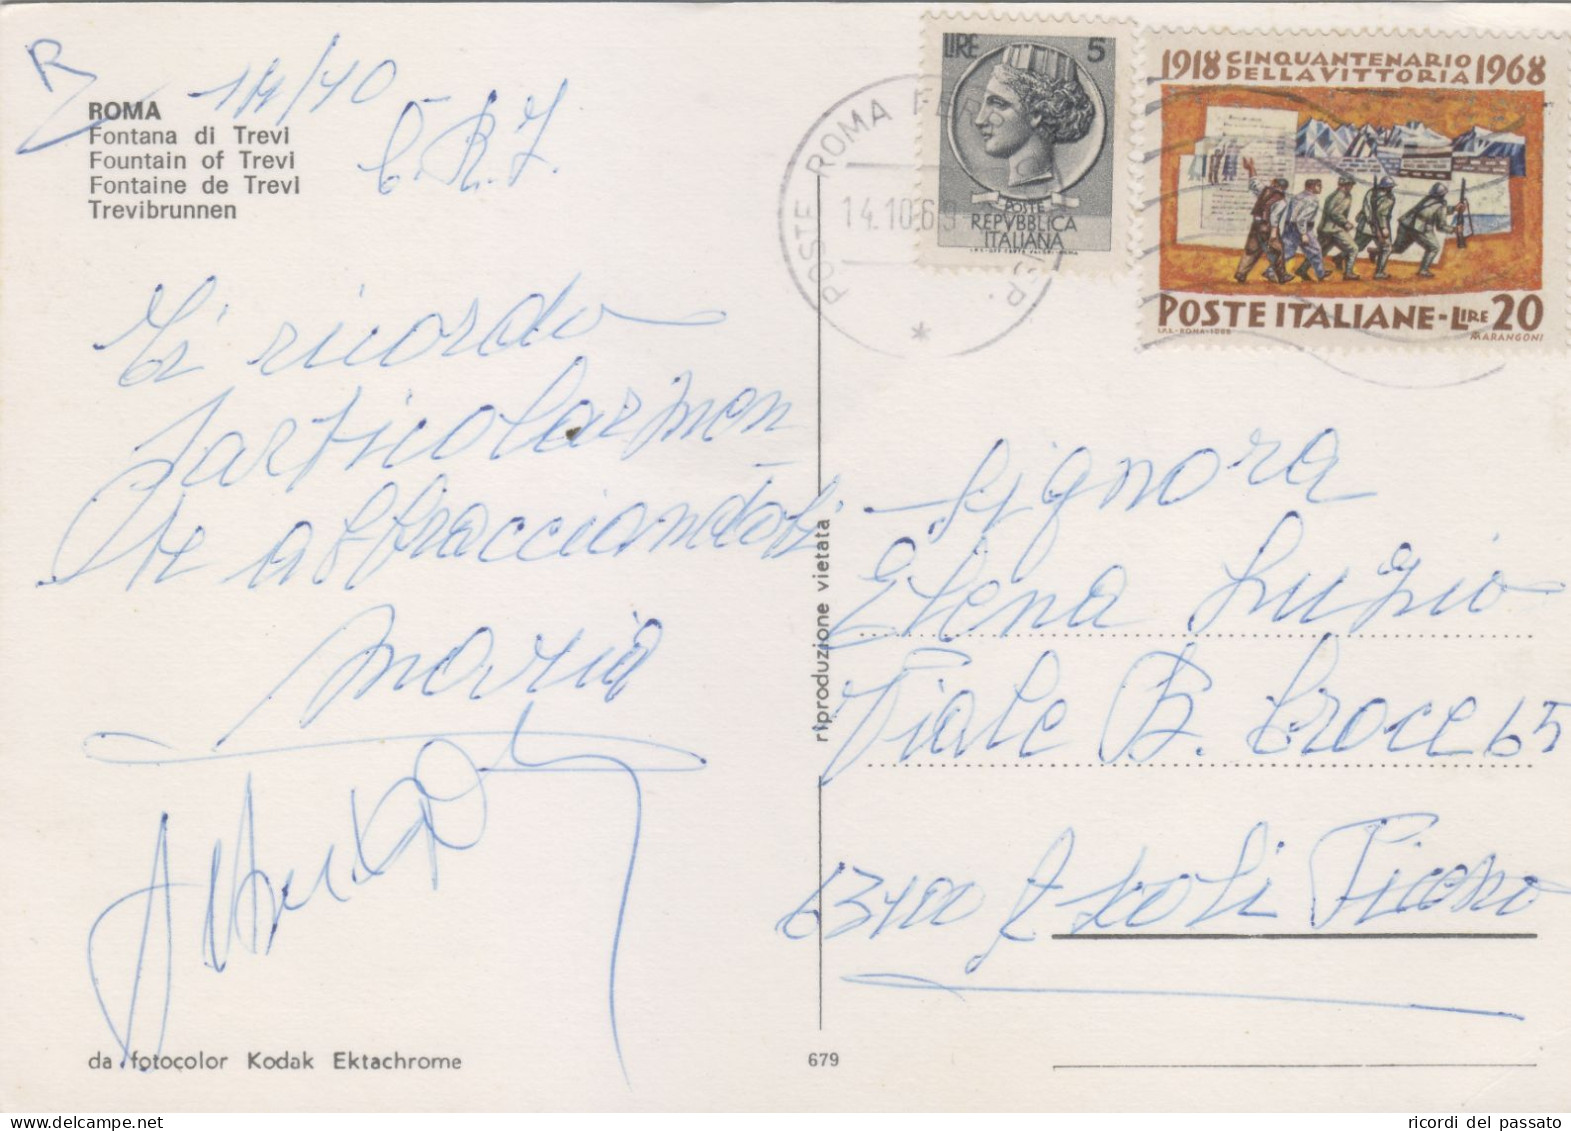 R
14/10
ROMA
Fontana di Trevi
Fountain of Trevi
Fontaine de Trevi
Trevibrunnen
Ti ricordo
particolarmen
te abbracciandoti
Maria
da fotocolor Kodak Ektachrome
679
riproduzione vietata
POSTE ROMA FERR
14.10.69
LIRE 5
POSTE
REPVBBLICA
ITALIANA
1918 CINQUANTENARIO DELLA VITTORIA 1968
POSTE ITALIANE-LIRE 20
I.P.S.-ROMA-1968 MARANGONI
Signora
Elena Luzio
Viale B. Croce 65
63100 Ascoli Piceno
ricordi del passato